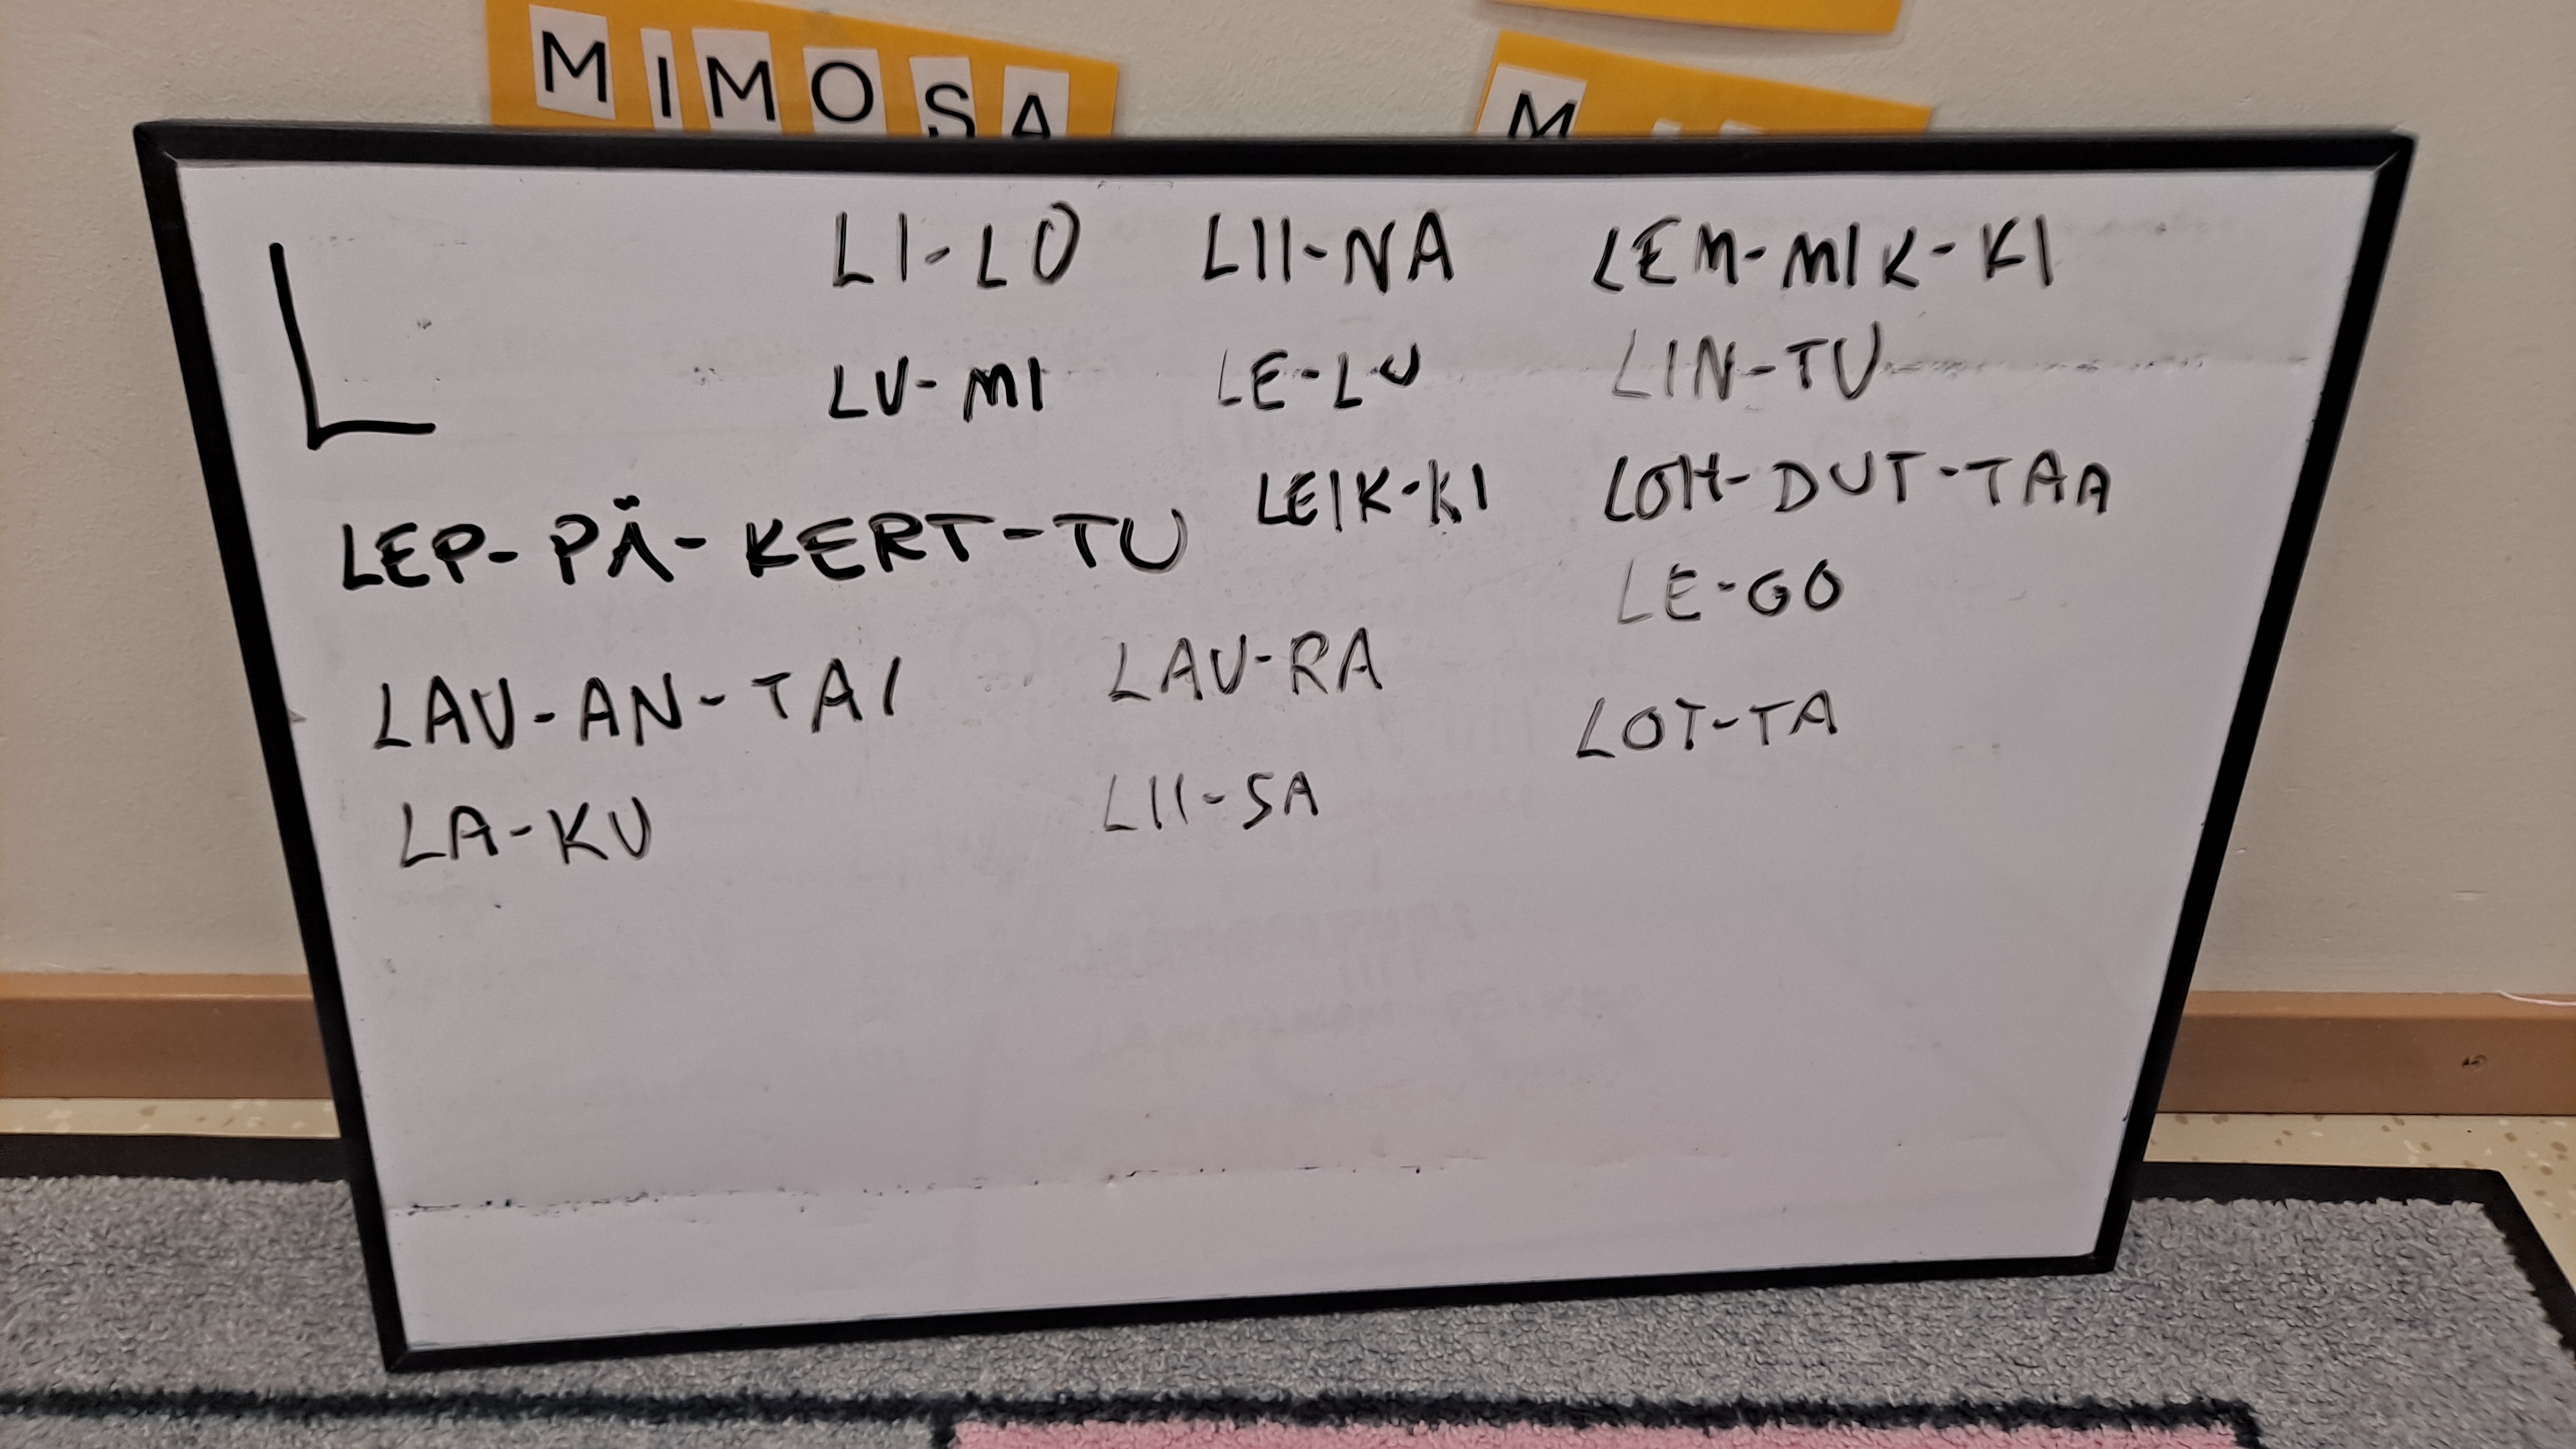 MIMOSA
M
L
LI-LO LII-NA LEM-MIK-KI
LU-MI LE-LU LIN-TU
LEP-PÄ-KERT-TU LEIK-KI LOH-DUT-TAA
LE-GO
LAU-AN-TAI LAU-RA LOT-TA
LA-KU LII-SA